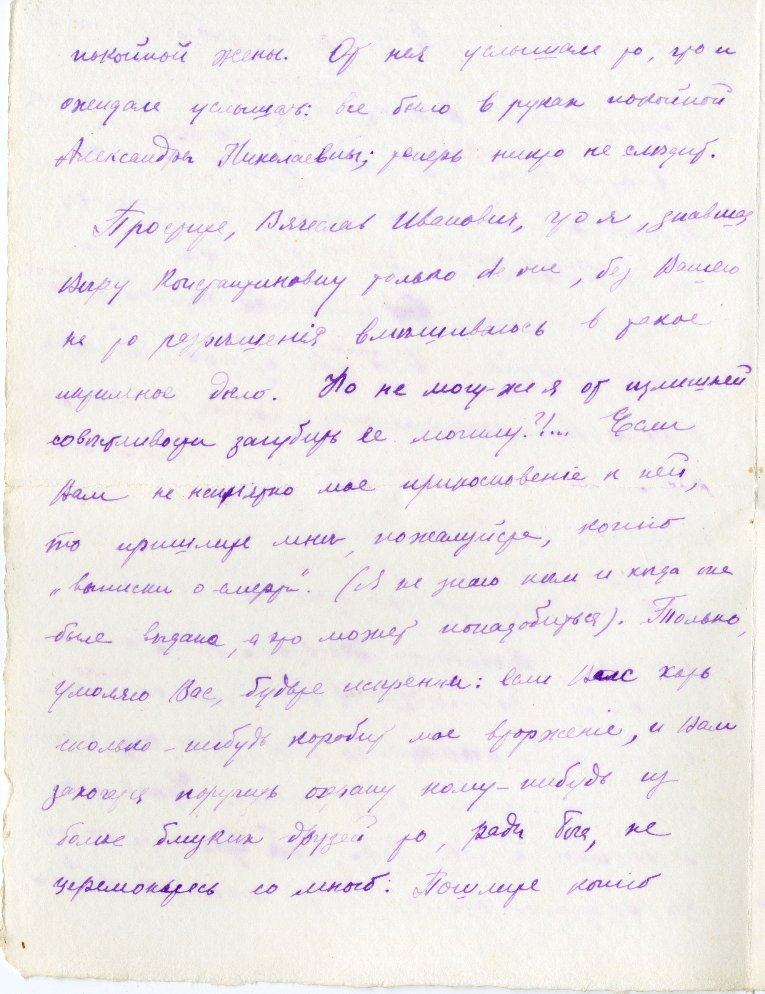 покойной жены. От нея услышала то, что и
ожидала услышать: все было в руках покойной
Александры Николаевны; теперь никто не следит.
Простите, Вячеслав Иванович, что я, знавшая
Вѣру Константиновну только, без Вашего
на то разрѣшенія вмѣшиваюсь в такое
интимное дѣло. Но не могу-же я от излишней
совѣстливости загубить ее могилу?!... Если
Вам не непріятно мое прикосновеніе к ней,
то пришлите мнѣ, пожалуйста, копію
„выписки о смерти". (Я не знаю кѣм и когда она
была выдана, а это может понадобиться). Только,
умоляю Вас, будьте искренни: если Вас хоть
сколько-нибудь коробит мое вторженіе, и Вам
захочется поручить охрану кому-нибудь из
болѣе близких друзей то, ради Бога, не
церемоньтесь со мною: Пошлите копію